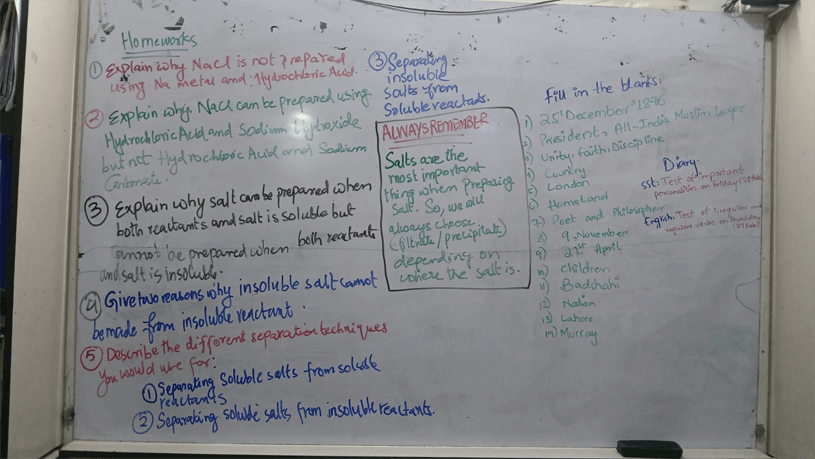 Homeworks
① Explain why NaCl is not prepared
using Na metal and Hydrochloric Acid.
② Explain why NaCl can be prepared using
Hydrochloric Acid and Sodium Hydroxide
but not Hydrochloric Acid and Sodium
Carbonate.
③ Explain why salt can be prepared when
both reactants and salt is soluble but
cannot be prepared when both reactants
and salt is insoluble.
④ Give two reasons why insoluble salt cannot
be made from insoluble reactant.
⑤ Describe the different separation techniques
you would use for:
① Separating Soluble salts from soluble
reactants
② Separating soluble salts from insoluble reactants.
③ Separating
insoluble
salts from
Soluble reactants.
ALWAYS REMEMBER
Salts are the
most important
thing when Preparing
Salt. So, we will
always choose
(filtrate/precipitate)
depending on
where the salt is.
Fill in the blanks:
1) 25th December 1876
2) President, All-India Muslim League
3) Unity, Faith, Discipline
4) Country
5) London
6) Homeland
7) Poet and Philosopher
8) 9 November
9) 21st April
10) Children
11) Badshahi
12) Nation
13) Lahore
14) Murray
Diary:
SSt: Test of important
personalities on Friday
English: Test of irregular and
regular verbs on thursday